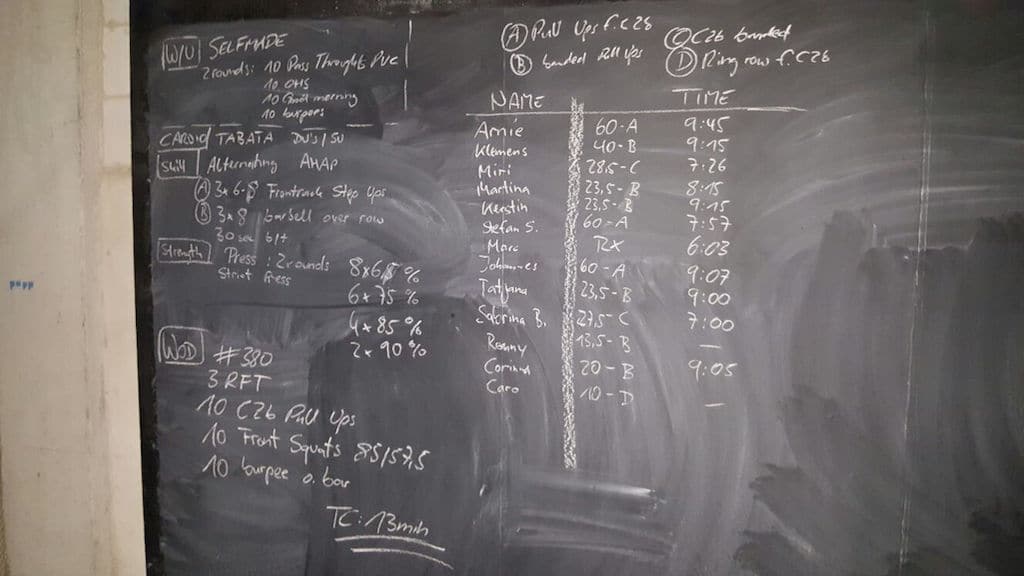 W/U SELFMADE
2 rounds: 10 Pass Throughs PVC
10 OHS
10 Good morning
10 burpees
CARDIO TABATA DU's/SU
Skill Alternating AHAP
A 3x6-8 Frontrack Step Ups
B 3x8 barbell over row
30 sec b/t
Strength Press: 2 rounds
Strict Press
8x65%
6x75%
4x85%
2x90%
WOD #380
3 RFT
10 C2b Pull Ups
10 Front Squats 85/57,5
10 burpee o. bar
TC: 13 min
A Pull Ups f. C2b
B banded Pull Ups
C C2b banded
D Ring row f. C2b
NAME TIME
Amie 60-A 9:45
Klemens 40-B 9:15
Miri 28,5-C 7:26
Martina 23,5-B 8:15
Kerstin 23,5-B 9:15
Stefan S. 60-A 7:57
Marc RX 6:03
Johannes 60-A 9:07
Tatjana 23,5-B 9:00
Sabrina B. 27,5-C 7:00
Romy 15,5-B —
Corinna 20-B 9:05
Caro 10-D —